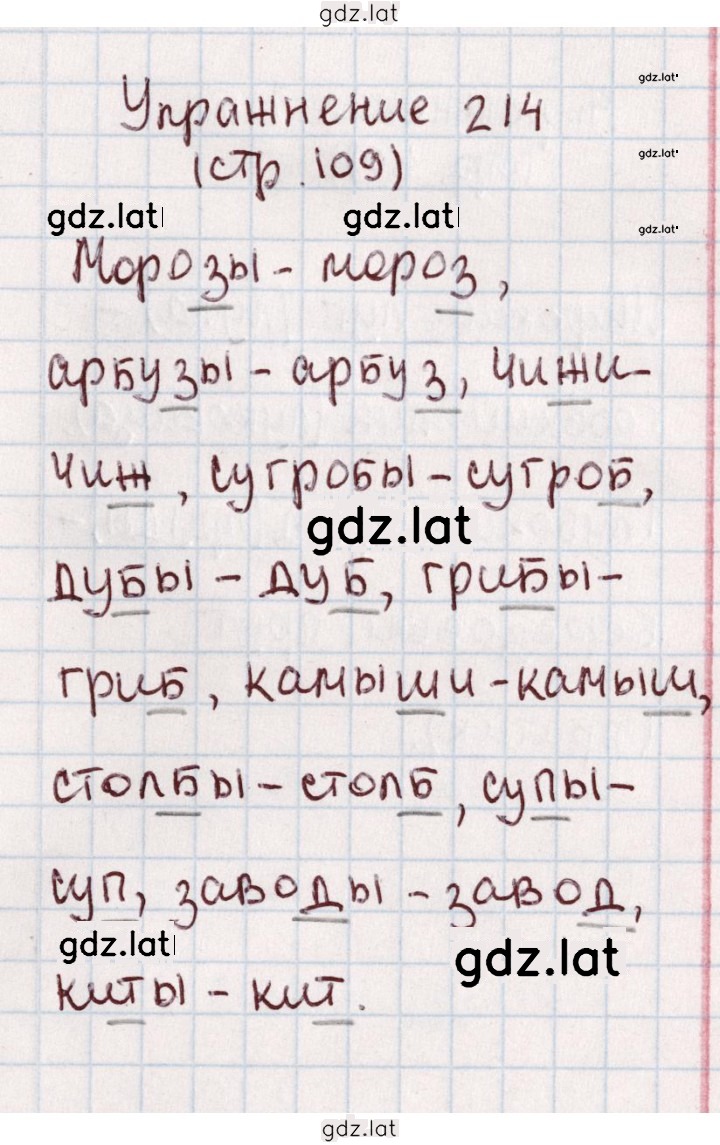 gdz.lat
gdz.lat
Упражнение 214
gdz.lat
(стр. 109)
gdz.lat gdz.lat gdz.lat
Морозы - мороз,
арбузы - арбуз, чижи-
чиж, сугробы - сугроб,
gdz.lat
дубы - дуб, грибы-
гриб, камыши - камыш,
столбы - столб, супы-
суп, заводы - завод,
gdz.lat gdz.lat
киты - кит.
gdz.lat